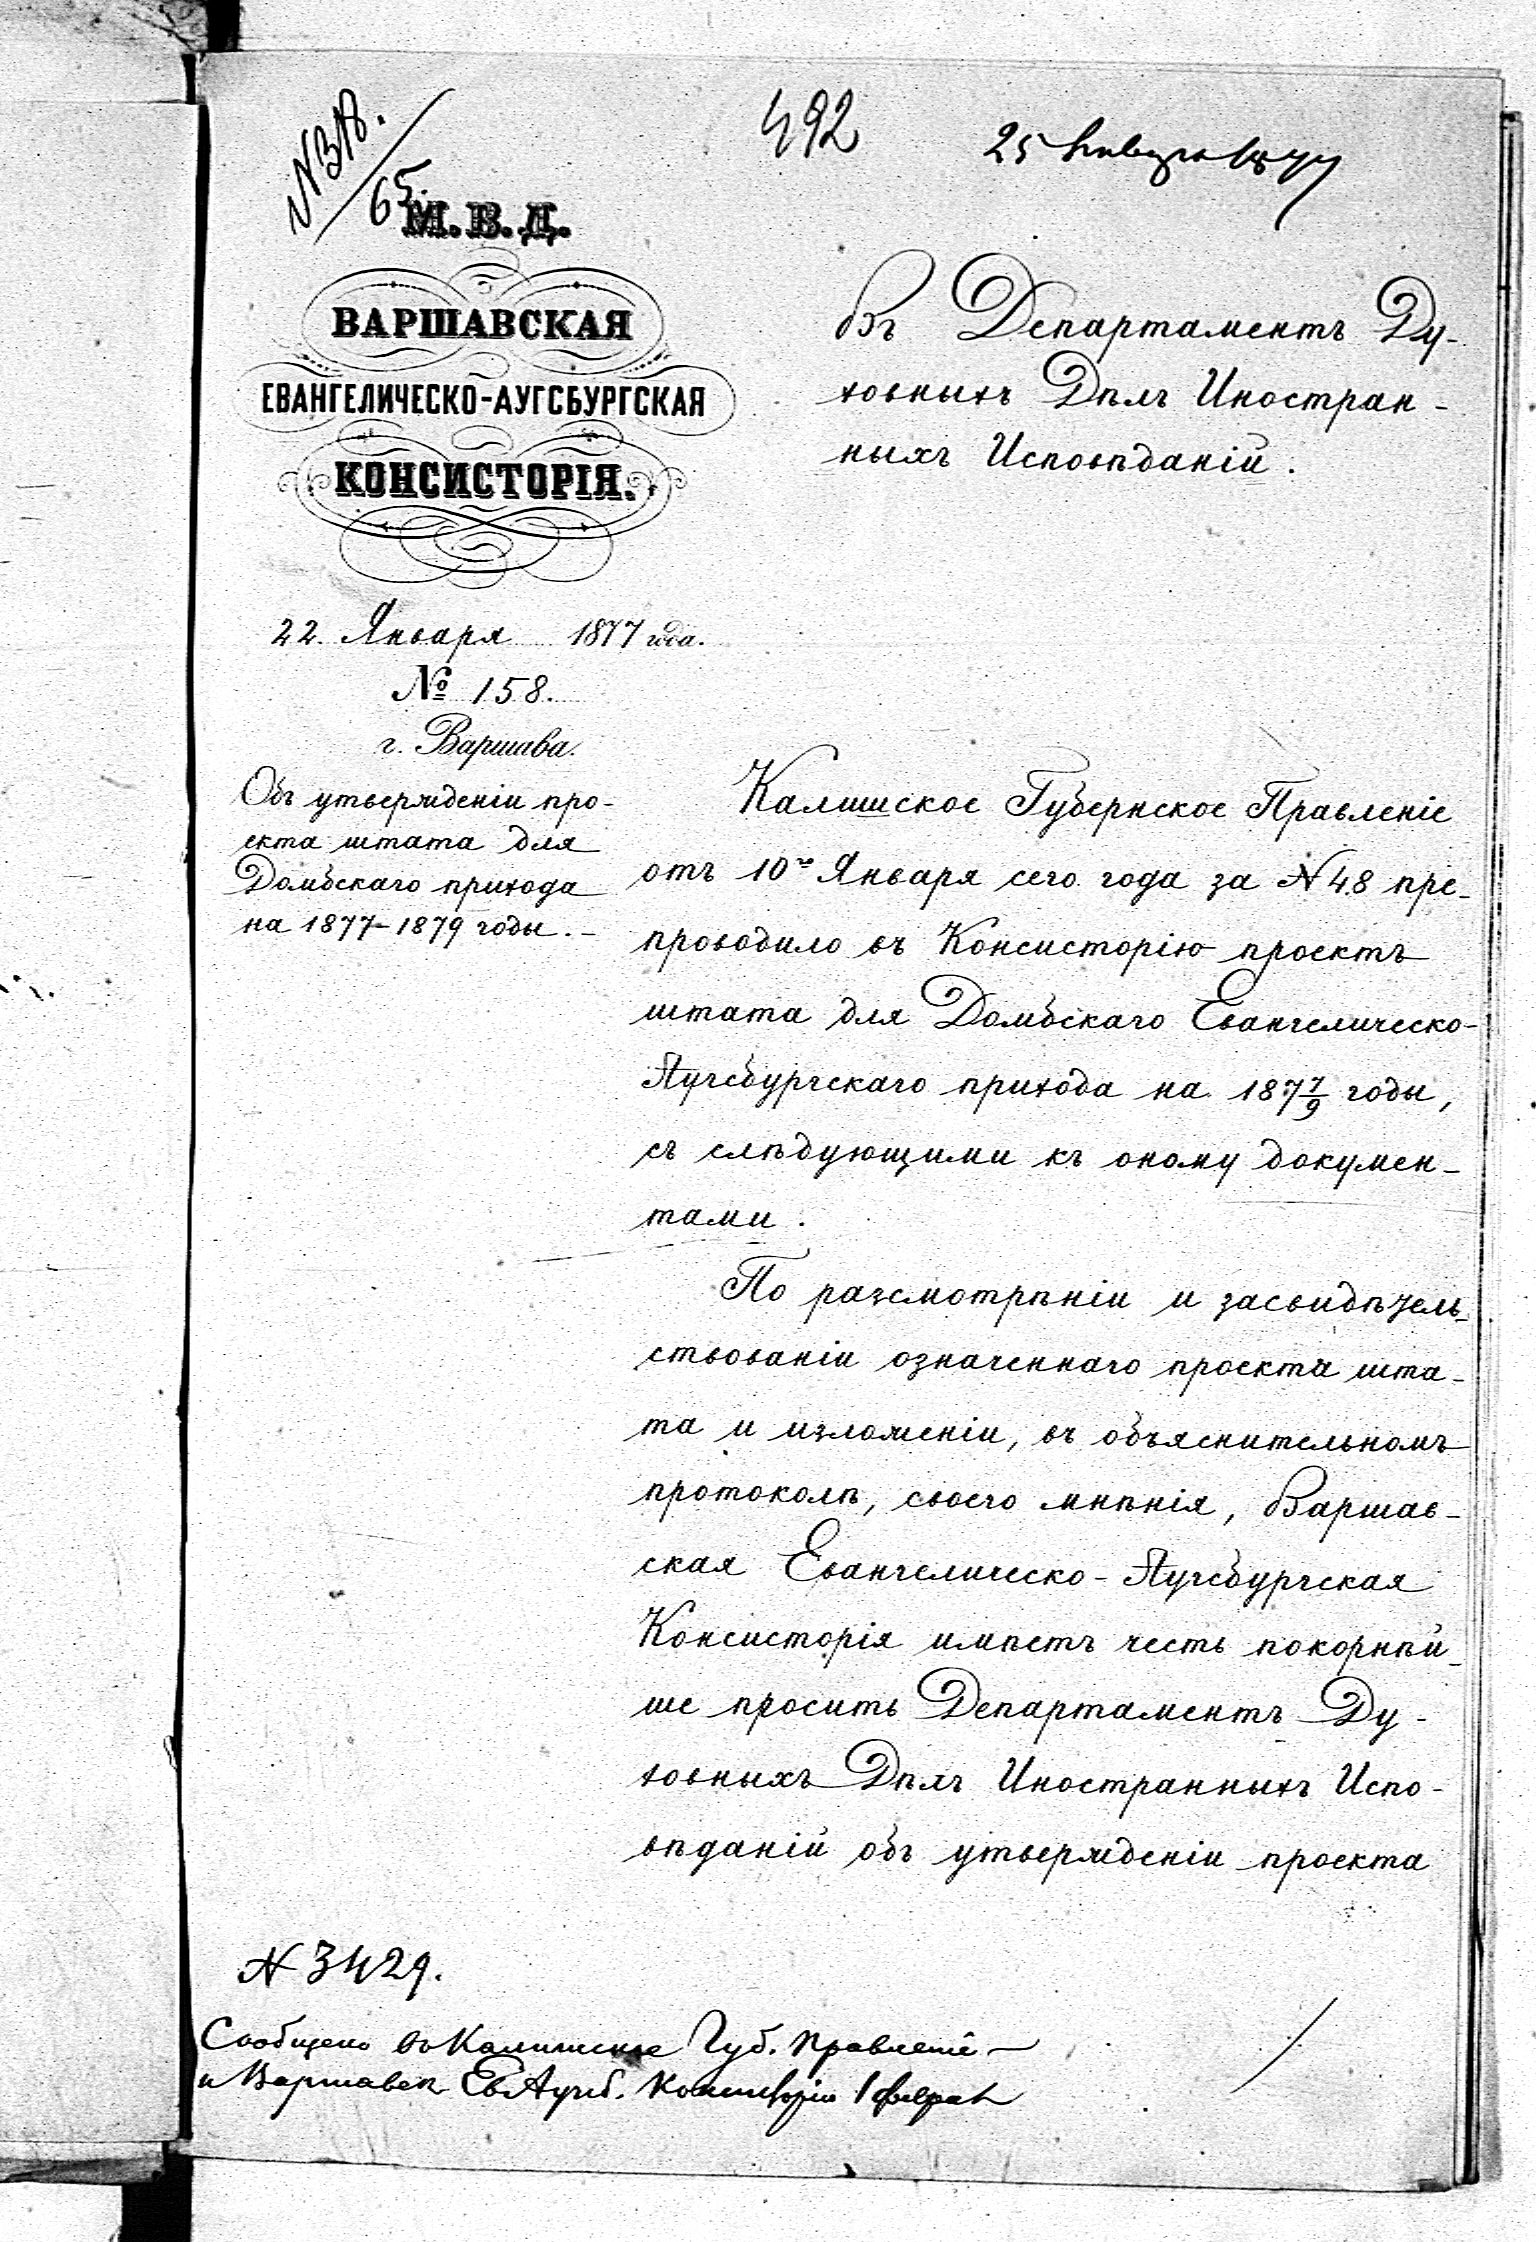 № 318.
65.
492
25 января 1877
М.В.Д.
ВАРШАВСКАЯ
ЕВАНГЕЛИЧЕСКО-АУГСБУРГСКАЯ
КОНСИСТОРІЯ.
22. Января 1877 года.
№ 158.
г. Варшава.
Объ утвержденіи про-
екта штата для
Домбскаго прихода
на 1877-1879 годы.-
Въ Департаментъ Ду-
ховныхъ Дѣлъ Иностран-
ныхъ Исповѣданій.
Калишское Губернское Правленіе
отъ 10го Января сего года за № 48 пре-
проводило въ Консисторію проектъ
штата для Домбскаго Евангелическо-
Аугсбургскаго прихода на 187 7/9 годы,
съ слѣдующими къ оному докумен-
тами.
По разсмотрѣніи и засвидѣтель-
ствованіи означеннаго проекта шта-
та и изложеніи, въ объяснительномъ
протоколѣ, своего мнѣнія, Варшав-
ская Евангелическо-Аугсбургская
Консисторія имѣетъ честь покорнѣй-
ше просить Департаментъ Ду-
ховныхъ Дѣлъ Иностранныхъ Испо-
вѣданій объ утвержденіи проекта
№ 3429.
Сообщено въ Калишское Губ. Правленіе
и Варшавск. Ев. Аугсб. Консисторію 1 февраля